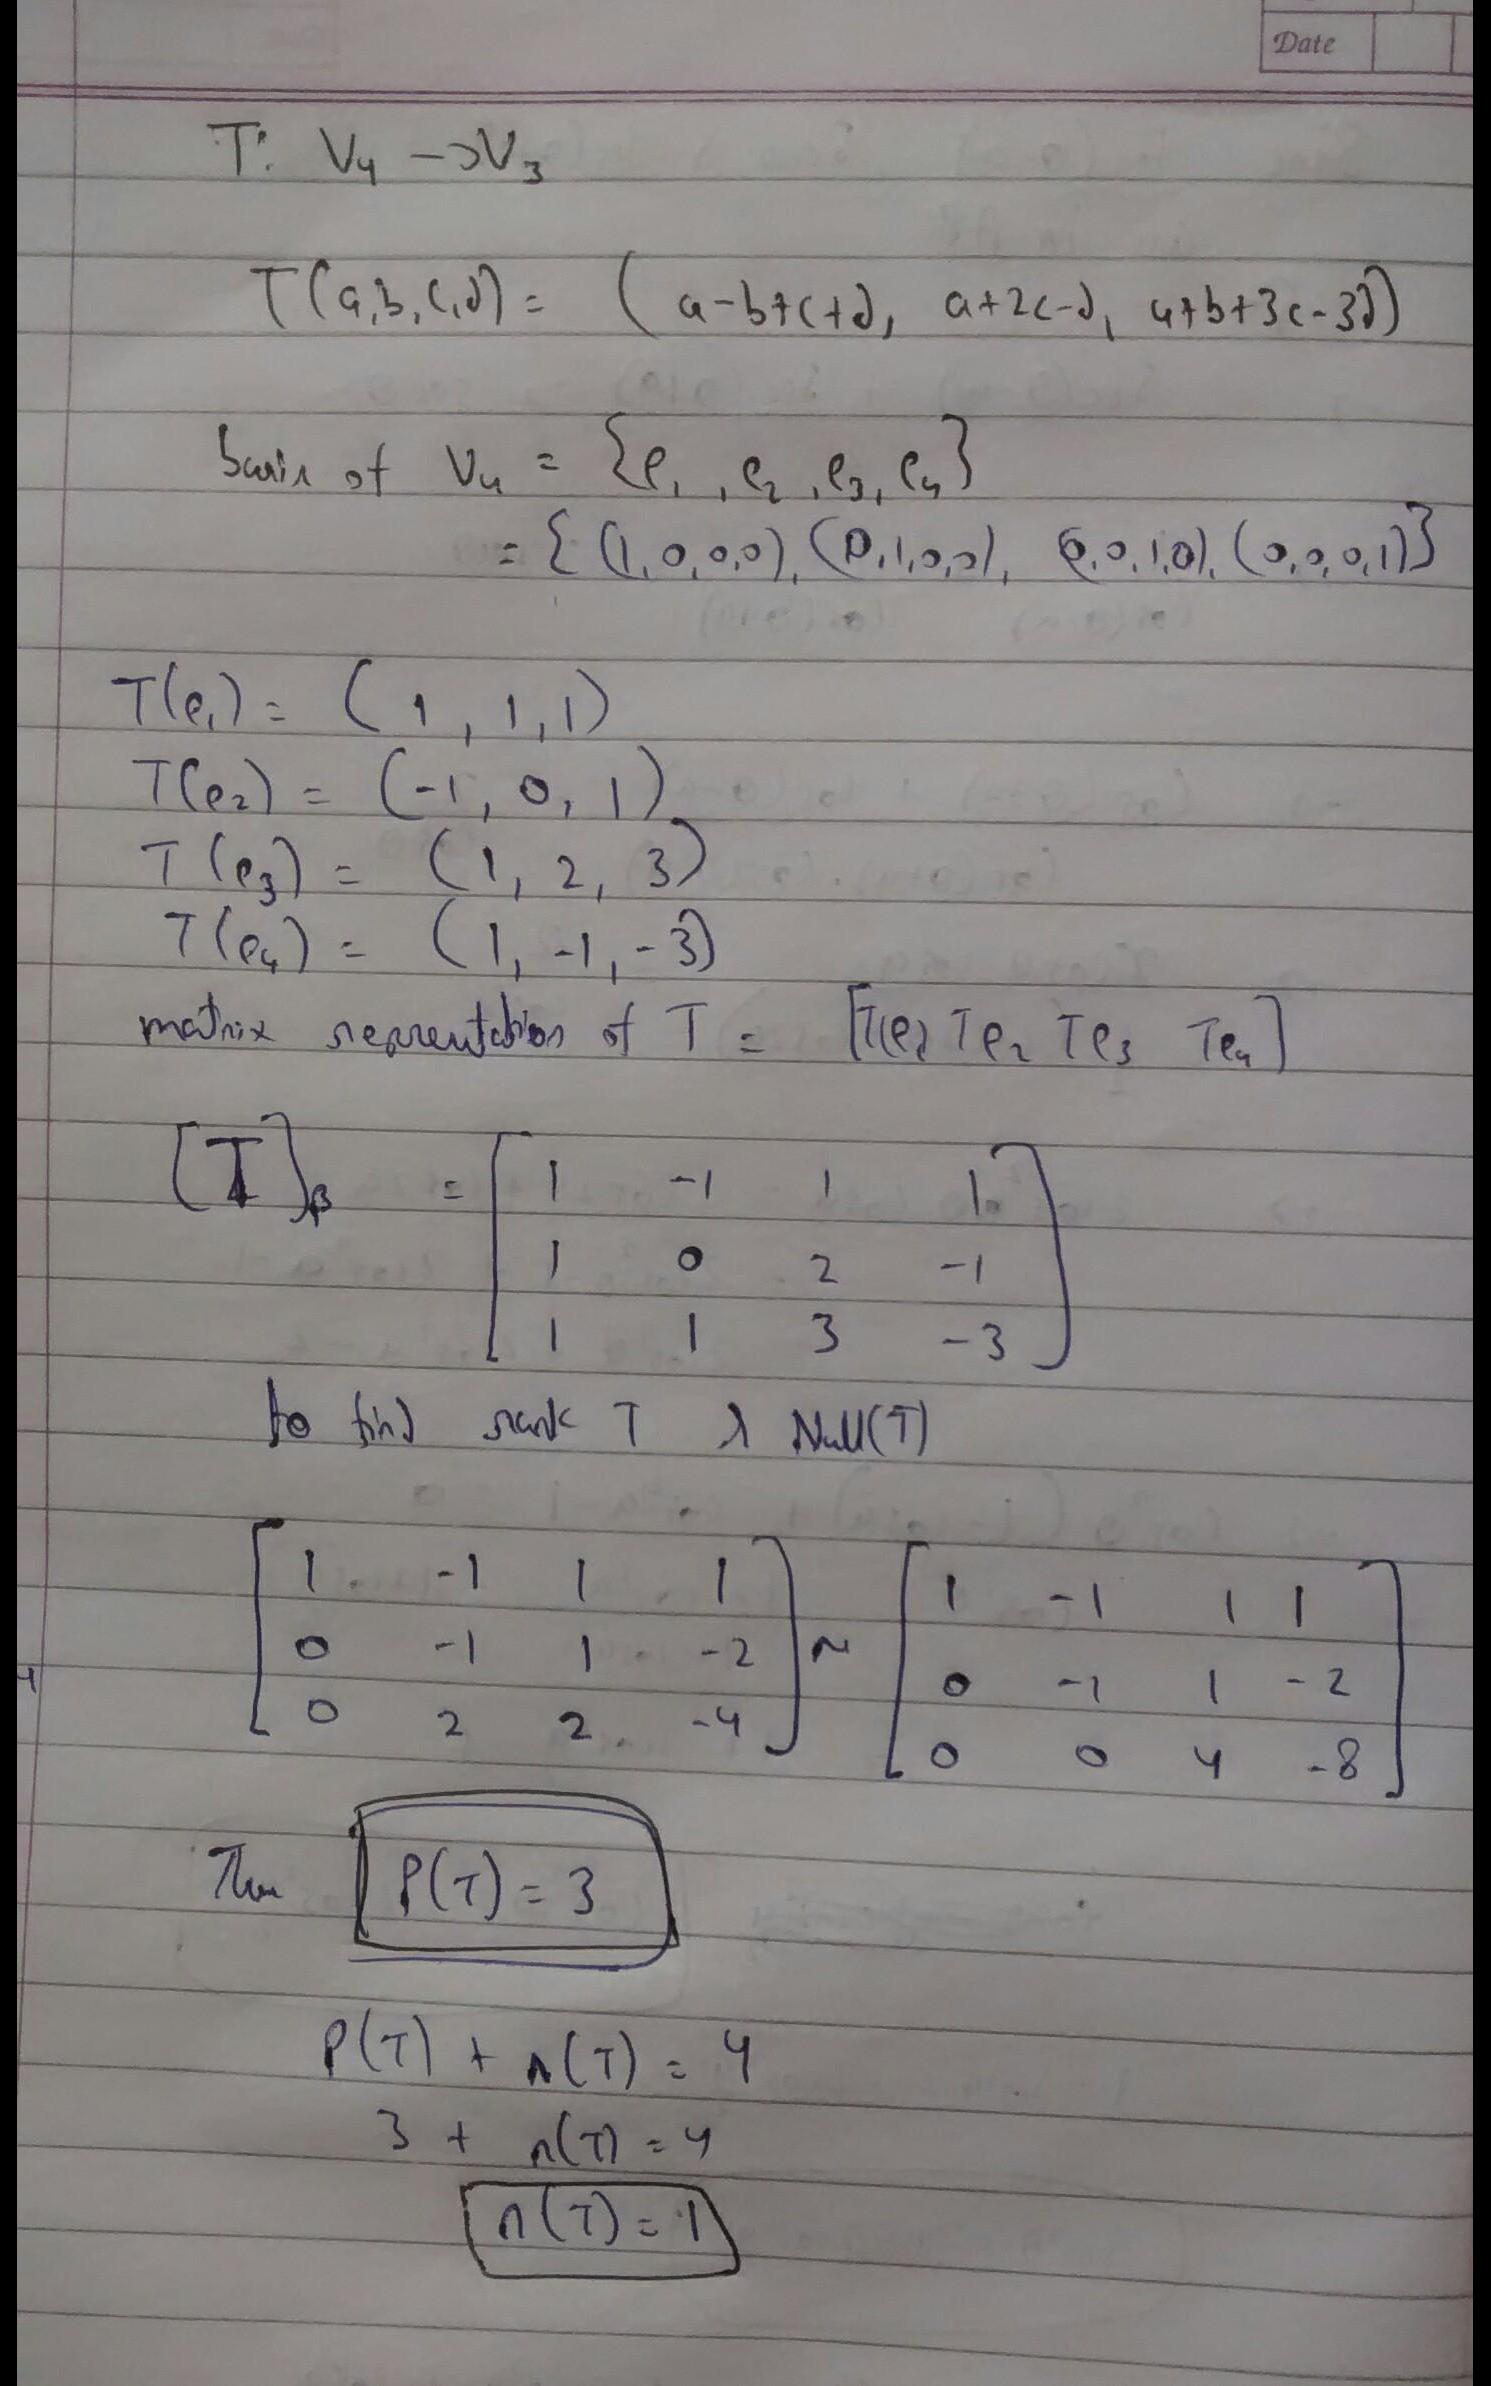 Date
T: V₄ → V₃
T(a,b,c,d) = (a-b+c+d, a+2c-d, a+b+3c-3d)
basis of V₄ = {e₁, e₂, e₃, e₄}
= {(1,0,0,0), (0,1,0,0), (0,0,1,0), (0,0,0,1)}
T(e₁) = (1, 1, 1)
T(e₂) = (-1, 0, 1)
T(e₃) = (1, 2, 3)
T(e₄) = (1, -1, -3)
matrix representation of T = [T(e₁) Te₂ Te₃ Te₄]
[T]β = [ 1 -1 1 1
1 0 2 -1
1 1 3 -3 ]
to find rank T & Null(T)
[ 1 -1 1 1 ] ~ [ 1 -1 1 1 ]
[ 0 -1 1 -2 ] [ 0 -1 1 -2 ]
[ 0 2 2 -4 ] [ 0 0 4 -8 ]
Then ρ(T) = 3
ρ(T) + n(T) = 4
3 + n(T) = 4
n(T) = 1